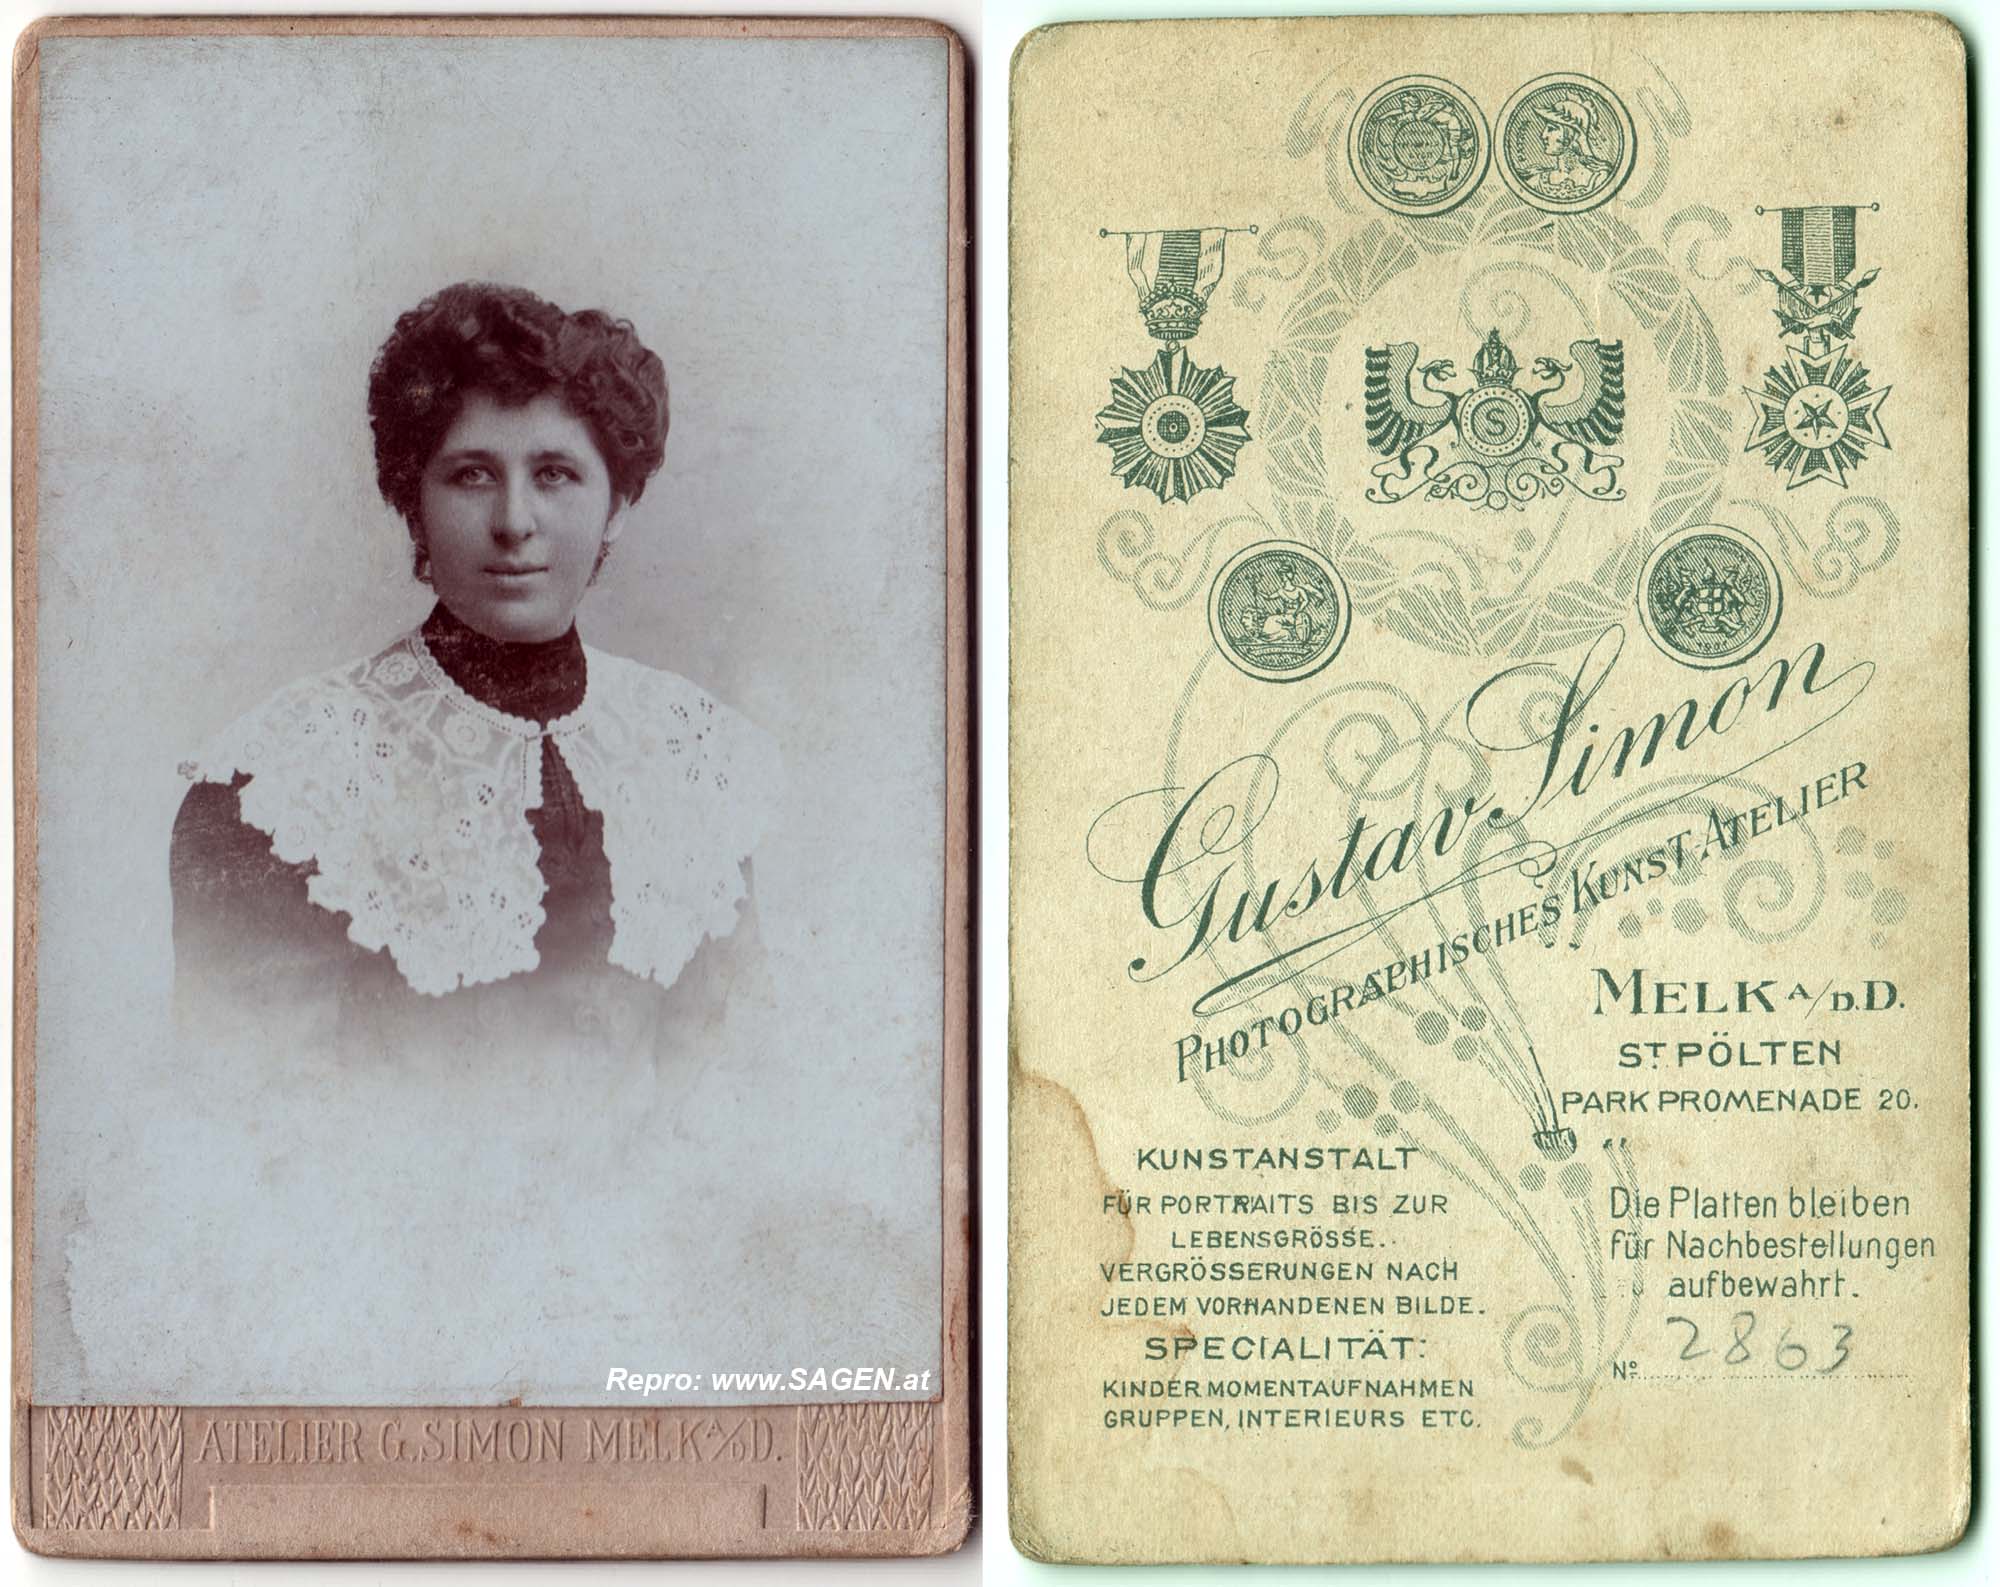 Repro: www.SAGEN.at
ATELIER G. SIMON MELK A/D D.
S
Gustav Simon
PHOTOGRAPHISCHES KUNST-ATELIER
MELK A/D.D.
ST. PÖLTEN
PARK PROMENADE 20.
KUNSTANSTALT
FÜR PORTRAITS BIS ZUR
LEBENSGRÖSSE.
VERGRÖSSERUNGEN NACH
JEDEM VORHANDENEN BILDE.
SPECIALITÄT:
KINDERMOMENTAUFNAHMEN
GRUPPEN, INTERIEURS ETC.
Die Platten bleiben
für Nachbestellungen
aufbewahrt.
No 2863